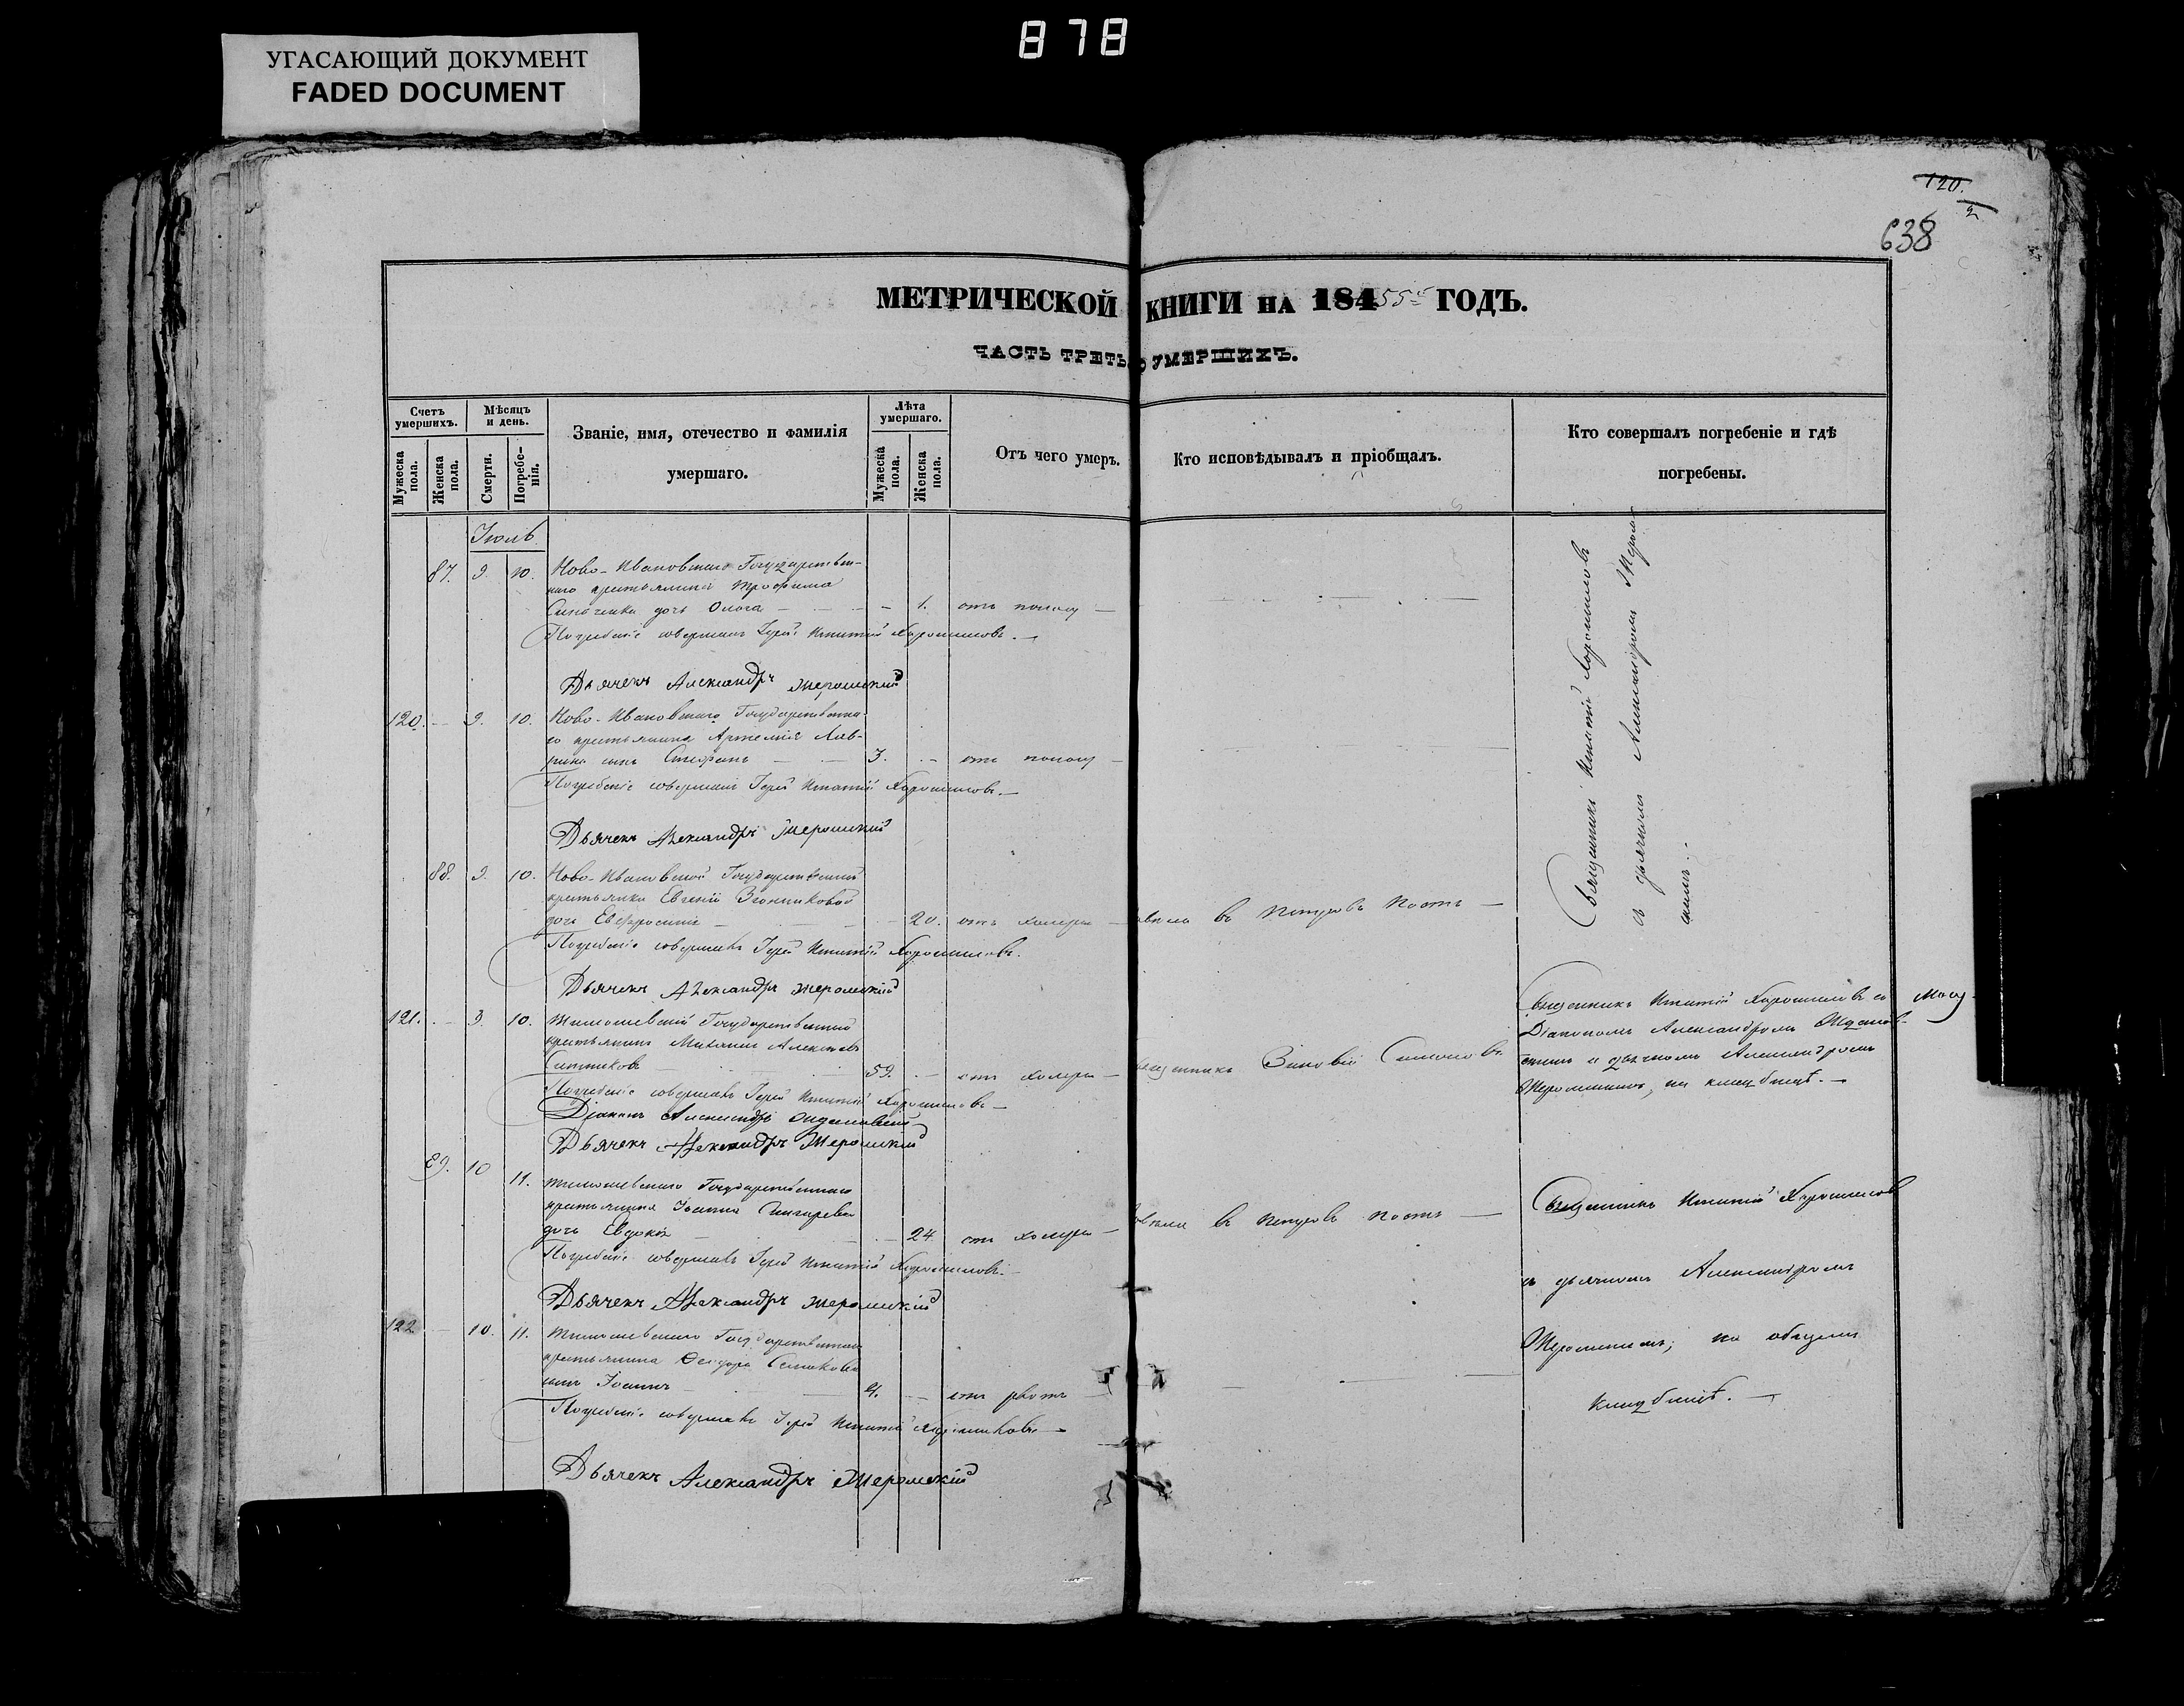 878
УГАСАЮЩИЙ ДОКУМЕНТ
FADED DOCUMENT
120.
2
638
МЕТРИЧЕСКОЙ КНИГИ НА 184 55 ГОДЪ.
ЧАСТЬ ТРЕТЬ УМЕРШИХЪ.
Счетъ умершихъ.
Мужеска пола.
Женска пола.
Мѣсяцъ и день.
Смерти.
Погребе-нія.
Званіе, имя, отечество и фамилія
умершаго.
Лѣта умершаго.
Мужеска пола.
Женска пола.
Отъ чего умеръ.
Кто исповѣдывалъ и пріобщалъ.
Кто совершалъ погребеніе и гдѣ
погребены.
Іюль
87. 9. 10. Ново-Ивановскаго Государствен-
наго крестьянина Трофима
дочь Олга — 1. отъ поносу —
Погребеніе совершалъ Іерей Игнатій Хорошиловъ. —
Дьячекъ Александръ Жеромскій
120. — 9. 10. Ново-Ивановскаго Государственна-
го крестьянина Артемія Лав-
сынъ Стефанъ — 3. — отъ поносу —
Погребеніе совершалъ Іерей Игнатій Хорошиловъ. —
Дьячекъ Александръ Жеромскій
88. 9. 10. Ново-Ивановской Государственной
крестьянки Евгеніи
дочь Евфросинія — 20. отъ холеры — въ Петровъ постъ —
Погребеніе совершалъ Іерей Игнатій Хорошиловъ.
Дьячекъ Александръ Жеромскій
Священникъ Игнатій Хорошиловъ
съ дьячкомъ Александромъ Жером-
скимъ.
121. — 9. 10. Государственный
крестьянинъ Михаилъ Алексѣевъ
Ситниковъ — 59. — отъ холеры — Священникъ Зиновій
Погребеніе совершалъ Іерей Игнатій Хорошиловъ —
Діаконъ Александръ
Дьячекъ Александръ Жеромскій
Священникъ Игнатій Хорошиловъ со
Діакономъ Александромъ
и дьячкомъ Александромъ
Жеромскимъ, на кладбищѣ. —
89. 10 11. Государственнаго
крестьянина Іоанна
дочь Евдокія — 24 отъ холеры — въ Петровъ постъ —
Погребеніе совершалъ Іерей Игнатій Хорошиловъ. —
Дьячекъ Александръ Жеромскій
Священникъ Игнатій Хорошиловъ
съ дьячкомъ Александромъ
Жеромскимъ; на общемъ
кладбищѣ. —
122 — 10. 11. Государственнаго
крестьянина Ѳеодора
сынъ Іоаннъ — отъ рвоты —
Погребеніе совершалъ Іерей Игнатій Хорошиловъ —
Дьячекъ Александръ Жеромскій